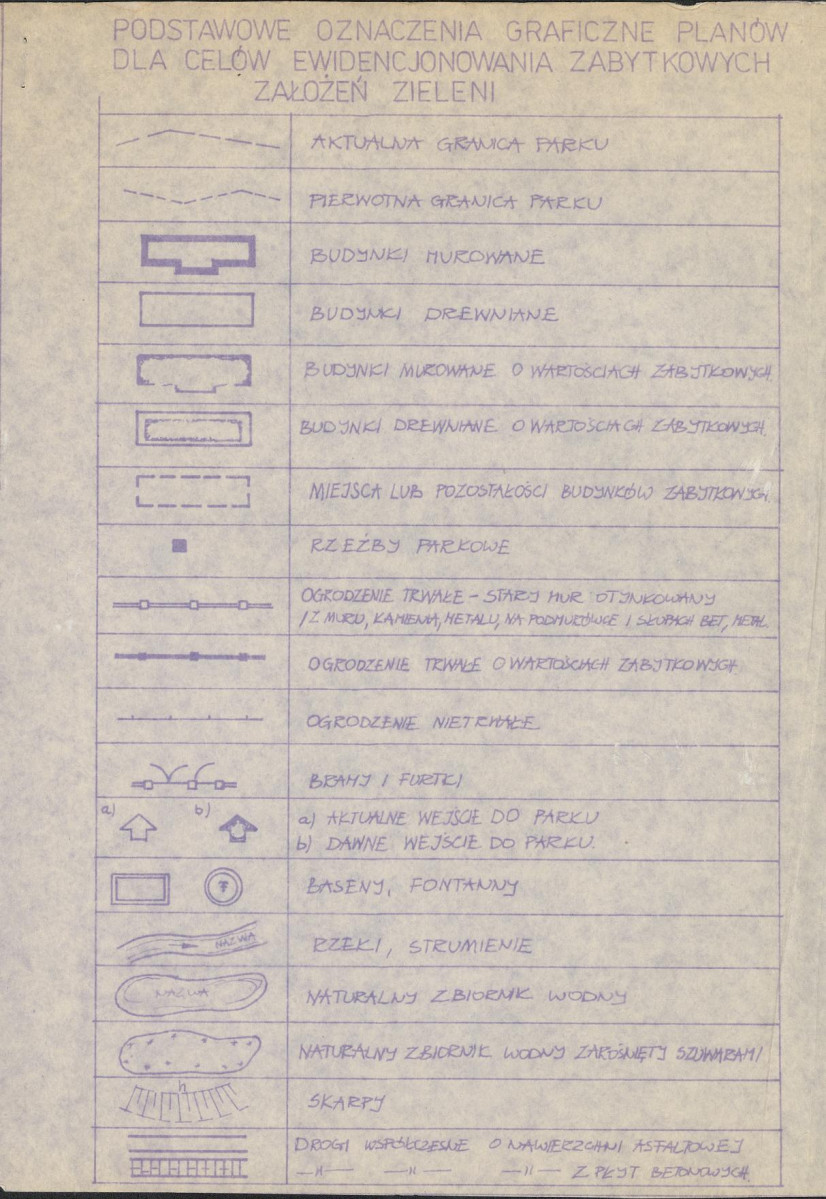 PODSTAWOWE OZNACZENIA GRAFICZNE PLANÓW
DLA CELÓW EWIDENCJONOWANIA ZABYTKOWYCH
ZAŁOŻEŃ ZIELENI
AKTUALNA GRANICA PARKU
PIERWOTNA GRANICA PARKU
BUDYNKI MUROWANE
BUDYNKI DREWNIANE
BUDYNKI MUROWANE O WARTOŚCIACH ZABYTKOWYCH.
BUDYNKI DREWNIANE O WARTOŚCIACH ZABYTKOWYCH.
MIEJSCA LUB POZOSTAŁOŚCI BUDYNKÓW ZABYTKOWYCH.
RZEŹBY PARKOWE
OGRODZENIE TRWAŁE - STARY MUR OTYNKOWANY
/Z MURU, KAMIENIA, METALU, NA PODMURÓWCE I SŁUPACH BET, METAL.
OGRODZENIE TRWAŁE O WARTOŚCIACH ZABYTKOWYCH
OGRODZENIE NIETRWAŁE
BRAMY I FURTKI
a) b)
a) AKTUALNE WEJŚCIE DO PARKU
b) DAWNE WEJŚCIE DO PARKU.
BASENY, FONTANNY
NAZWA
RZEKI, STRUMIENIE
NAZWA
NATURALNY ZBIORNIK WODNY
NATURALNY ZBIORNIK WODNY ZAROŚNIĘTY SZUWARAMI
h
SKARPY
DROGI WSPÓŁCZESNE O NAWIERZCHNI ASFALTOWEJ
—"— —"— —"— Z PŁYT BETONOWYCH.